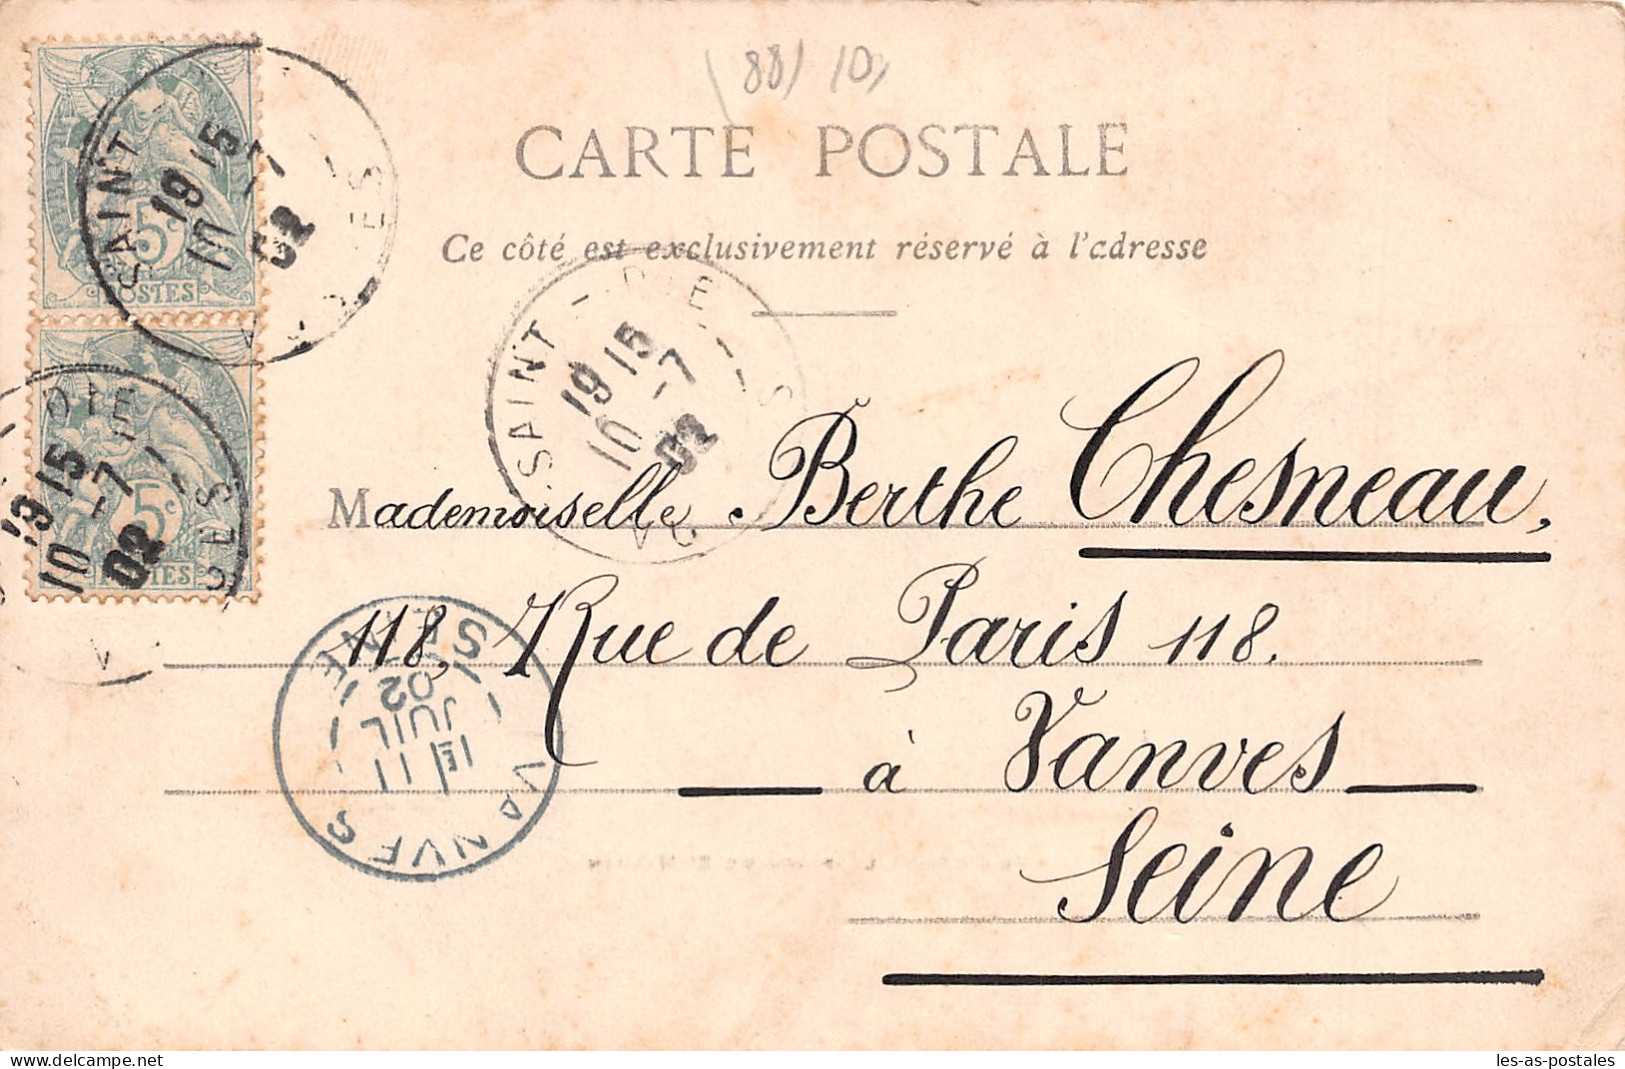 (88) 10,
CARTE POSTALE
Ce côté est exclusivement réservé à l'adresse
5c
POSTES
SAINT-DIÉ VOSGES
19 15
10 -7
02
5c
POSTES
DIE VOSGES
19 15
10 -7
02
SAINT-DIE VOSGES
19 15
10 -7
02
Mademoiselle Berthe Chesneau,
118, Rue de Paris 118.
à Vanves
Seine
VANVES SEINE
1E 11
JUIL
02
les-as-postales